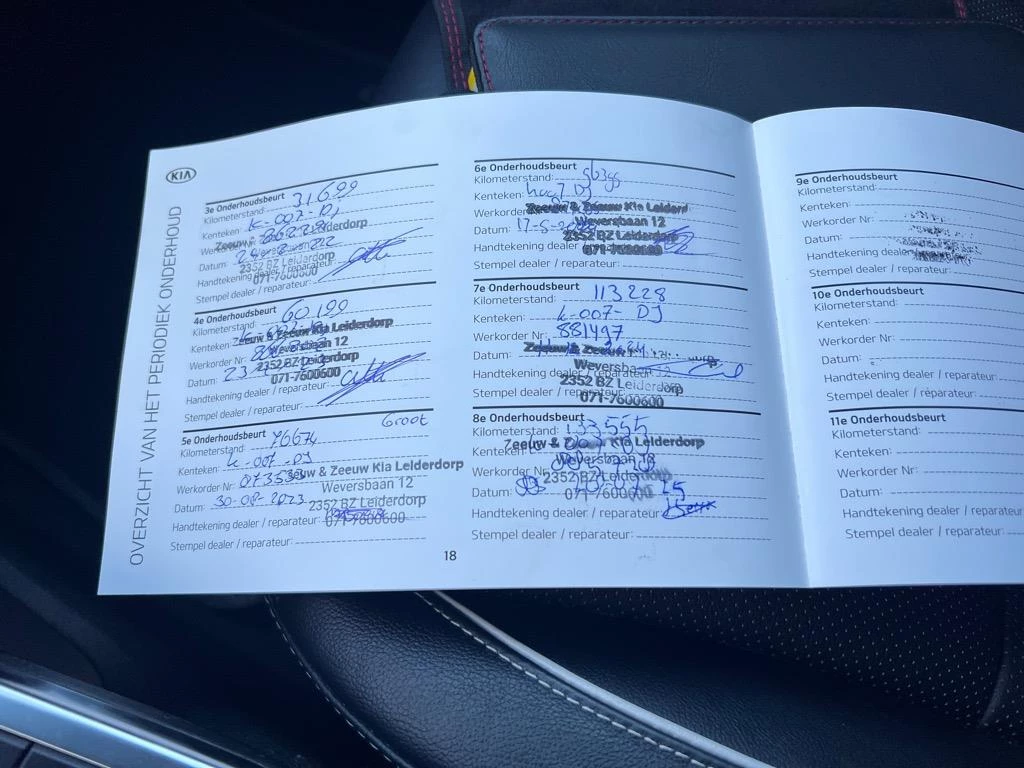 KIA
OVERZICHT VAN HET PERIODIEK ONDERHOUD
3e Onderhoudsbeurt
Kilometerstand: 31699
Kenteken: K-007-DJ
Werkorder Nr:
Zeeuw & Zeeuw Kia Leiderdorp
Weversbaan 12
Datum:
2352 BZ Leiderdorp
Handtekening dealer / reparateur:
071-7600600
Stempel dealer / reparateur:
4e Onderhoudsbeurt
Kilometerstand: 60199
Kenteken:
Zeeuw & Zeeuw Kia Leiderdorp
Werkorder Nr:
Weversbaan 12
Datum:
2352 BZ Leiderdorp
071-7600600
Handtekening dealer / reparateur:
Stempel dealer / reparateur:
Groot
5e Onderhoudsbeurt
Kilometerstand: 76674
Kenteken: K-007-DJ
Werkorder Nr:
Zeeuw & Zeeuw Kia Leiderdorp
Weversbaan 12
Datum: 30-08-2023
2352 BZ Leiderdorp
Handtekening dealer / reparateur:
071-7600600
Stempel dealer / reparateur:
18
6e Onderhoudsbeurt
Kilometerstand:
Kenteken:
Werkorder
Zeeuw & Zeeuw Kia Leiderdorp
Weversbaan 12
Datum: 17-5-
2352 BZ Leiderdorp
Handtekening dealer
071-7600600
Stempel dealer / reparateur:
7e Onderhoudsbeurt
Kilometerstand: 113228
Kenteken: K-007-DJ
Werkorder Nr: 881497
Datum:
Zeeuw & Zeeuw
Weversbaan
Handtekening dealer / reparateur:
2352 BZ Leiderdorp
Stempel dealer / reparateur:
071-7600600
8e Onderhoudsbeurt
Kilometerstand: 133555
Kenteken:
Zeeuw & Zeeuw Kia Leiderdorp
Werkorder Nr:
Weversbaan
2352 BZ Leiderdorp
Datum:
071-7600600
Handtekening dealer / reparateur:
Stempel dealer / reparateur:
9e Onderhoudsbeurt
Kilometerstand:
Kenteken:
Werkorder Nr:
Datum:
Handtekening dealer
Stempel dealer / reparateur:
10e Onderhoudsbeurt
Kilometerstand:
Kenteken:
Werkorder Nr:
Datum:
Handtekening dealer / reparateur:
Stempel dealer / reparateur:
11e Onderhoudsbeurt
Kilometerstand:
Kenteken:
Werkorder Nr:
Datum:
Handtekening dealer / reparateur:
Stempel dealer / reparateur: